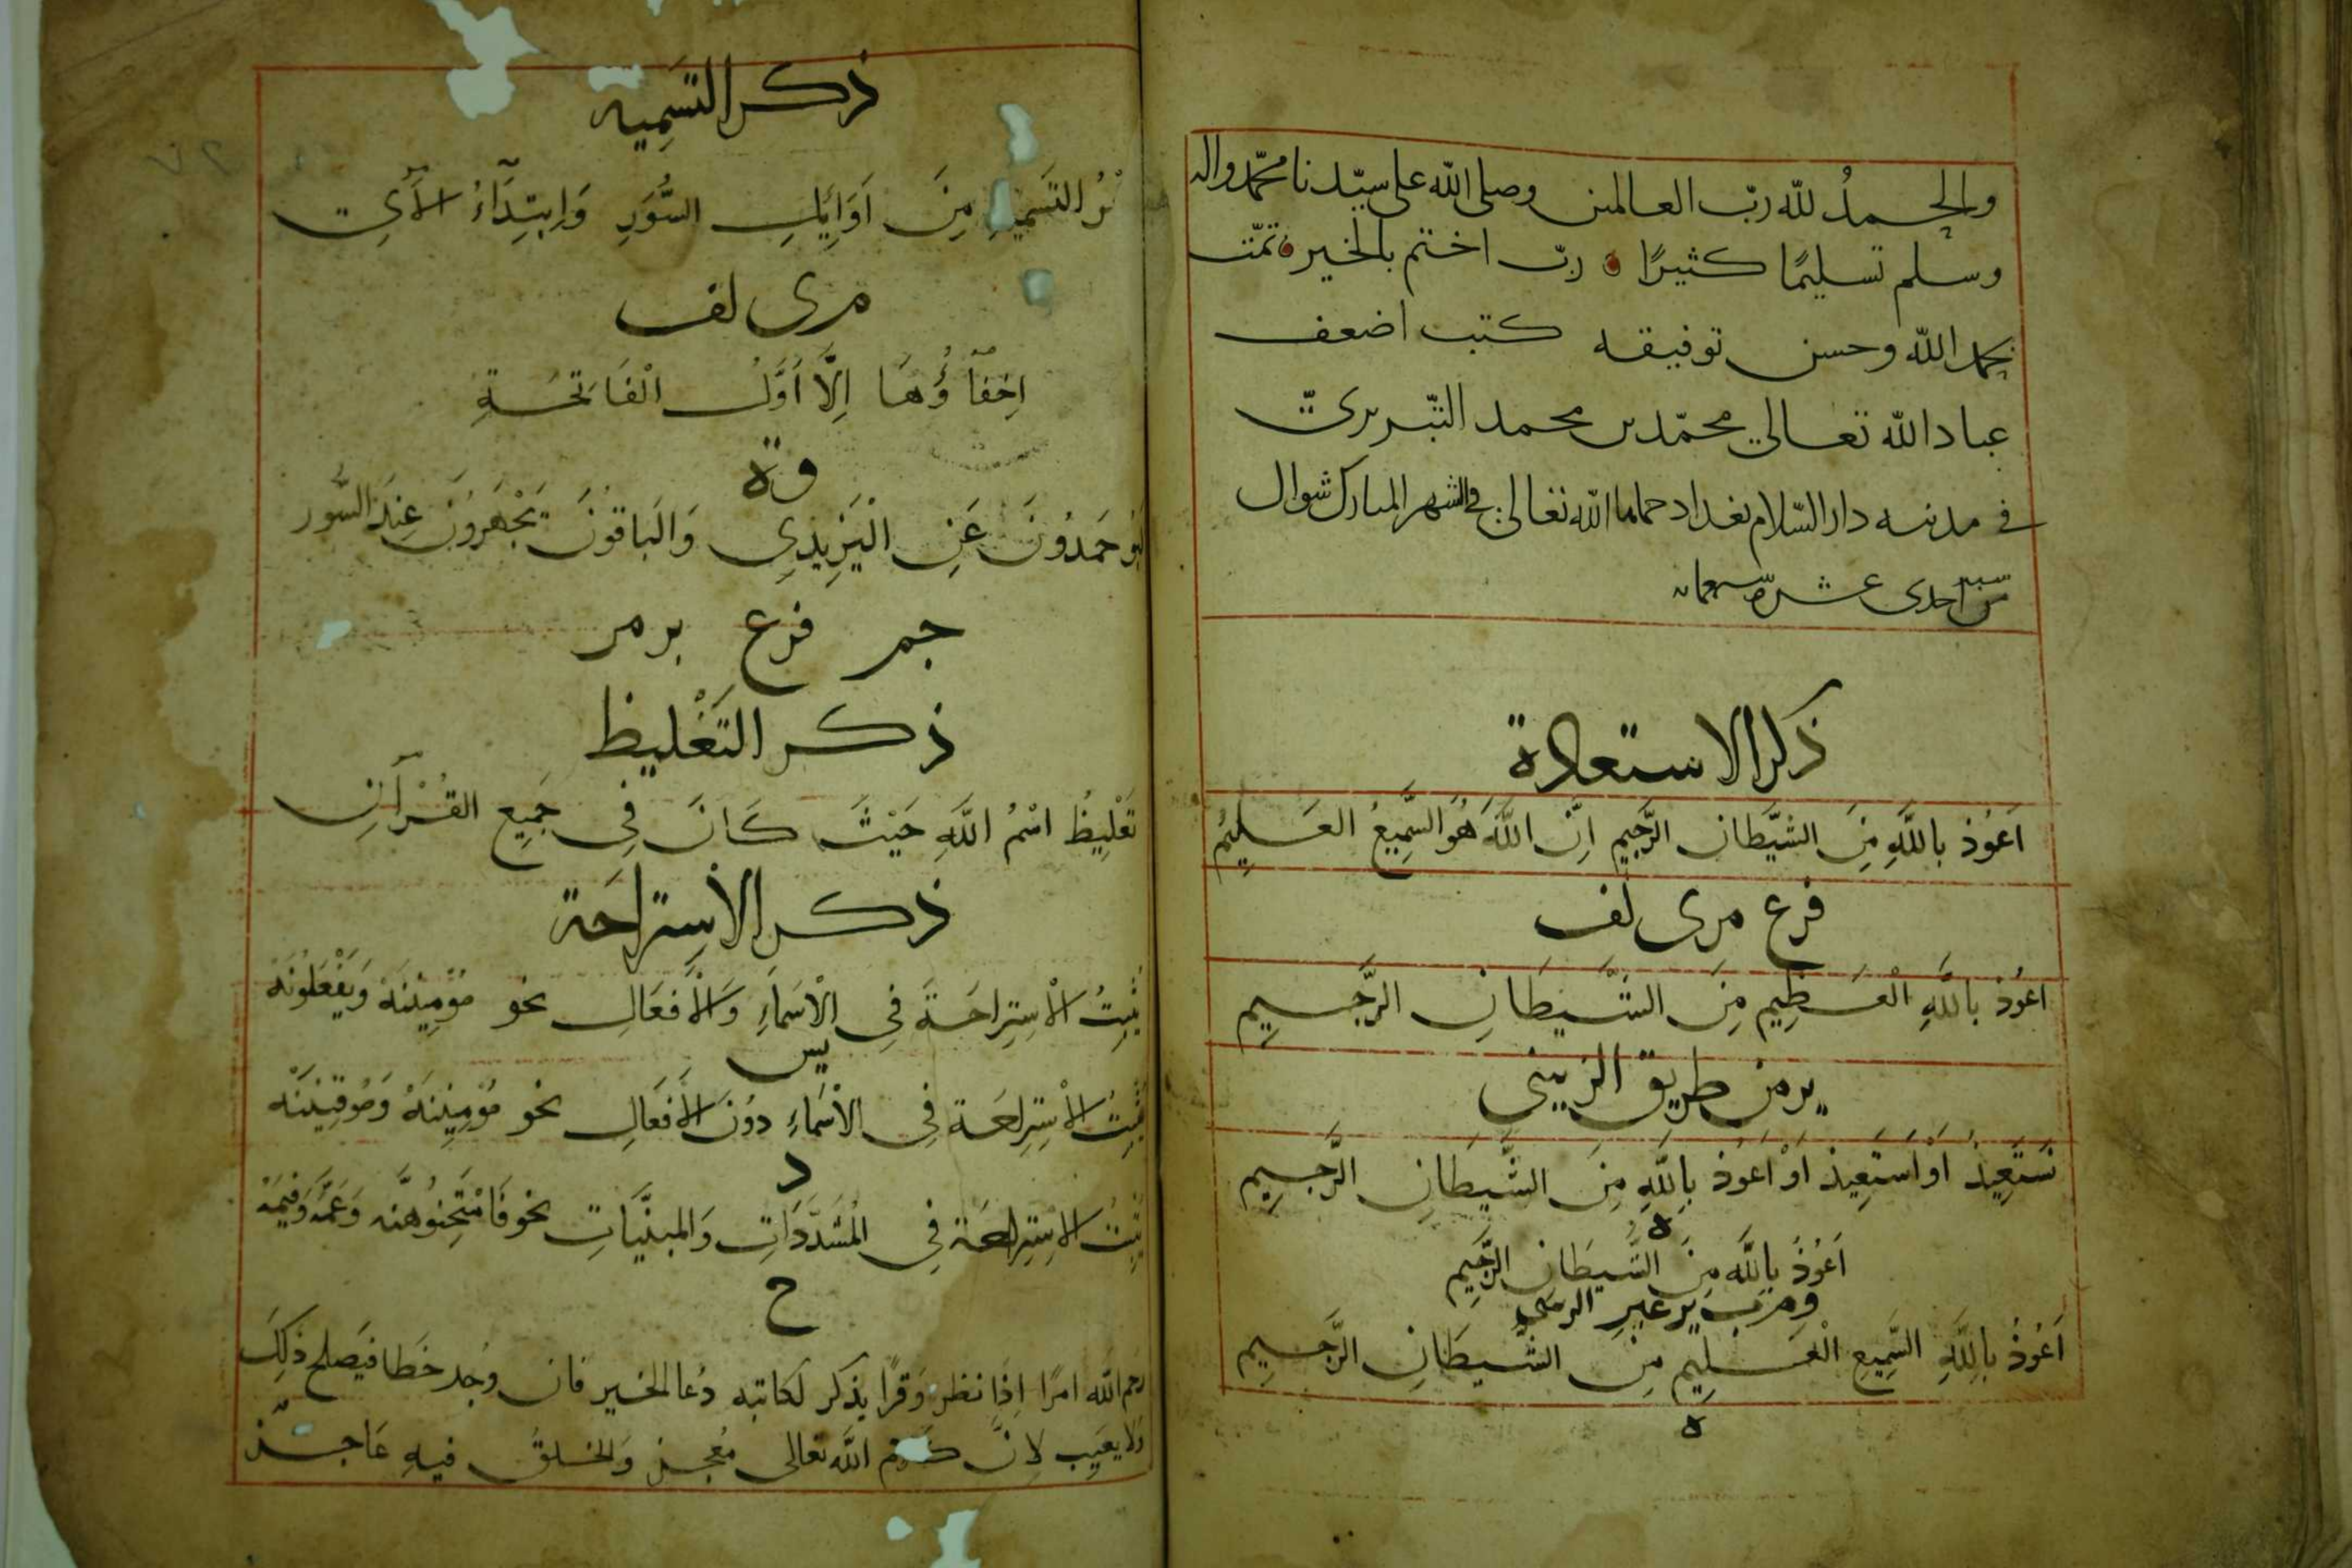 والحمدُ لله ربّ العالمين وصلى الله على سيّدنا محمّد واله
وسلم تسليمًا كثيرًا ربّ اختم بالخير تمّت
بحمد الله وحسن توفيقه كتب اضعف
عباد الله تعالى محمّد بن محمد التبريزي
في مدينه دار السّلام بغداد حماها الله تعالى في الشهر المبارك شوال
من سنه احدى عشره
ذكر الاستعاذة
اَعوُذ باللَّهِ مِنَ الشيَّطان الرَّجيِمِ اِنَّ اللَّهَ هُوَ السَّمِيعُ العَليِمُ
فرع مرى لف
اعَوُذ باللَّهِ الْعَظِيمِ مِنَ الشَّيطَانِ الرَّجيمِ
يرمن طريق الزينبي
نَستَعِيذُ اوْ اَستَعِيذ اوْ اَعوُذ بِاللَّهِ مِنَ الشَّيطَانِ الرَّجيمِ
ه
اَعوُذُ بِاللَّهِ مِنَ الشَّيطَانِ الرَّجِيمِ
اَعُوذُ بِاللَّهِ السَّمِيعِ الْعَلِيمِ مِنَ الشَّيطَانِ الرَّجيمِ
ه
ذكر التسَمِيه
التسَميةِ مِنَ اَوَايِلِ السُّوَرِ وَابتِدَاءُ الآىِ
مرى لف
اِخفاؤُهَا اِلَّا اَوَّلُ الْفَاتحَةِ
وة
حَمدُونَ عَنِ الْيَزِيدِى وَالبَاقوُنَ يَجْهَروُنَ عِندَ السُّور
جمر فرع برمر
ذكر التَغْليظ
تَغْلِيظُ اسْمُ اللَّهِ حَيْثَ كَانَ فِي جَمِيعِ القُرْآنِ
ذكر الأسِتراحَة
يُثبِتُ الاْسِتِراحَةَ فِي الْاَسمَاءِ وَالاَفعَالِ نحو مؤُمِنيِنَهْ وَيَفْعَلوُنَهْ
يس
يُثبِتُ الاْسِتِراحَة فِي الاَسْمَاءِ دوُنَ الاَفعَالِ نحو مؤُمِنيِنَهْ وَموُقِنيِنَهْ
د
يُثبِتُ الاْسِتِراحَة فِي المُشَدَّدَاتِ وَالمبنيَّاتِ نحو فَامْتَحِنُوهنَّه وَعَمَّهْ وَفِيمَهْ
ح
رحم الله امرًا اِذا نظر وَقرًا يذكر لكاتبه دُعا الخير فان وُجد خطا فيَصلح ذلِكَ
وَلا يعَيب لانَّ كلام الله تعالى مُعجز وَالخلقُ فيهِ عَاجز